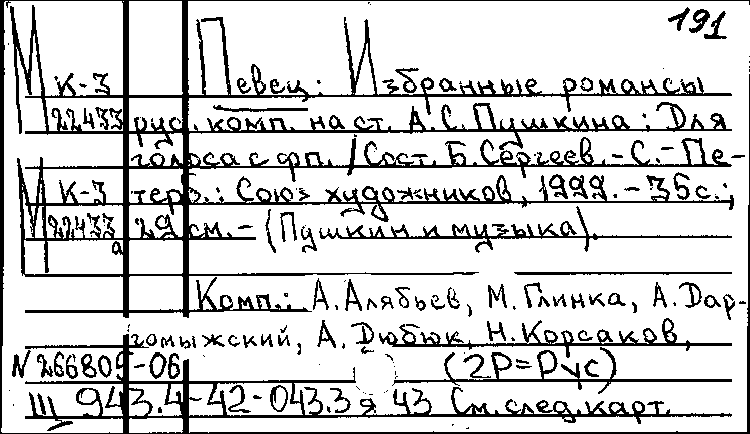 191
М К-3 Певец: Избранные романсы
22433 рус. комп. на ст. А.С. Пушкина: Для
голоса с фп. / Сост. Б. Сергеев. - С.-Пе-
М К-3 терб.: Союз художников, 1999. - 35 с.;
22433 29 см. - (Пушкин и музыка).
а
Комп.: А. Алябьев, М. Глинка, А. Дар-
гомыжский, А. Дюбюк, Н. Корсаков,
N 266805-06 (2Р=Рус)
Ш 943.4-42-043.3 я 43 См. след. карт.